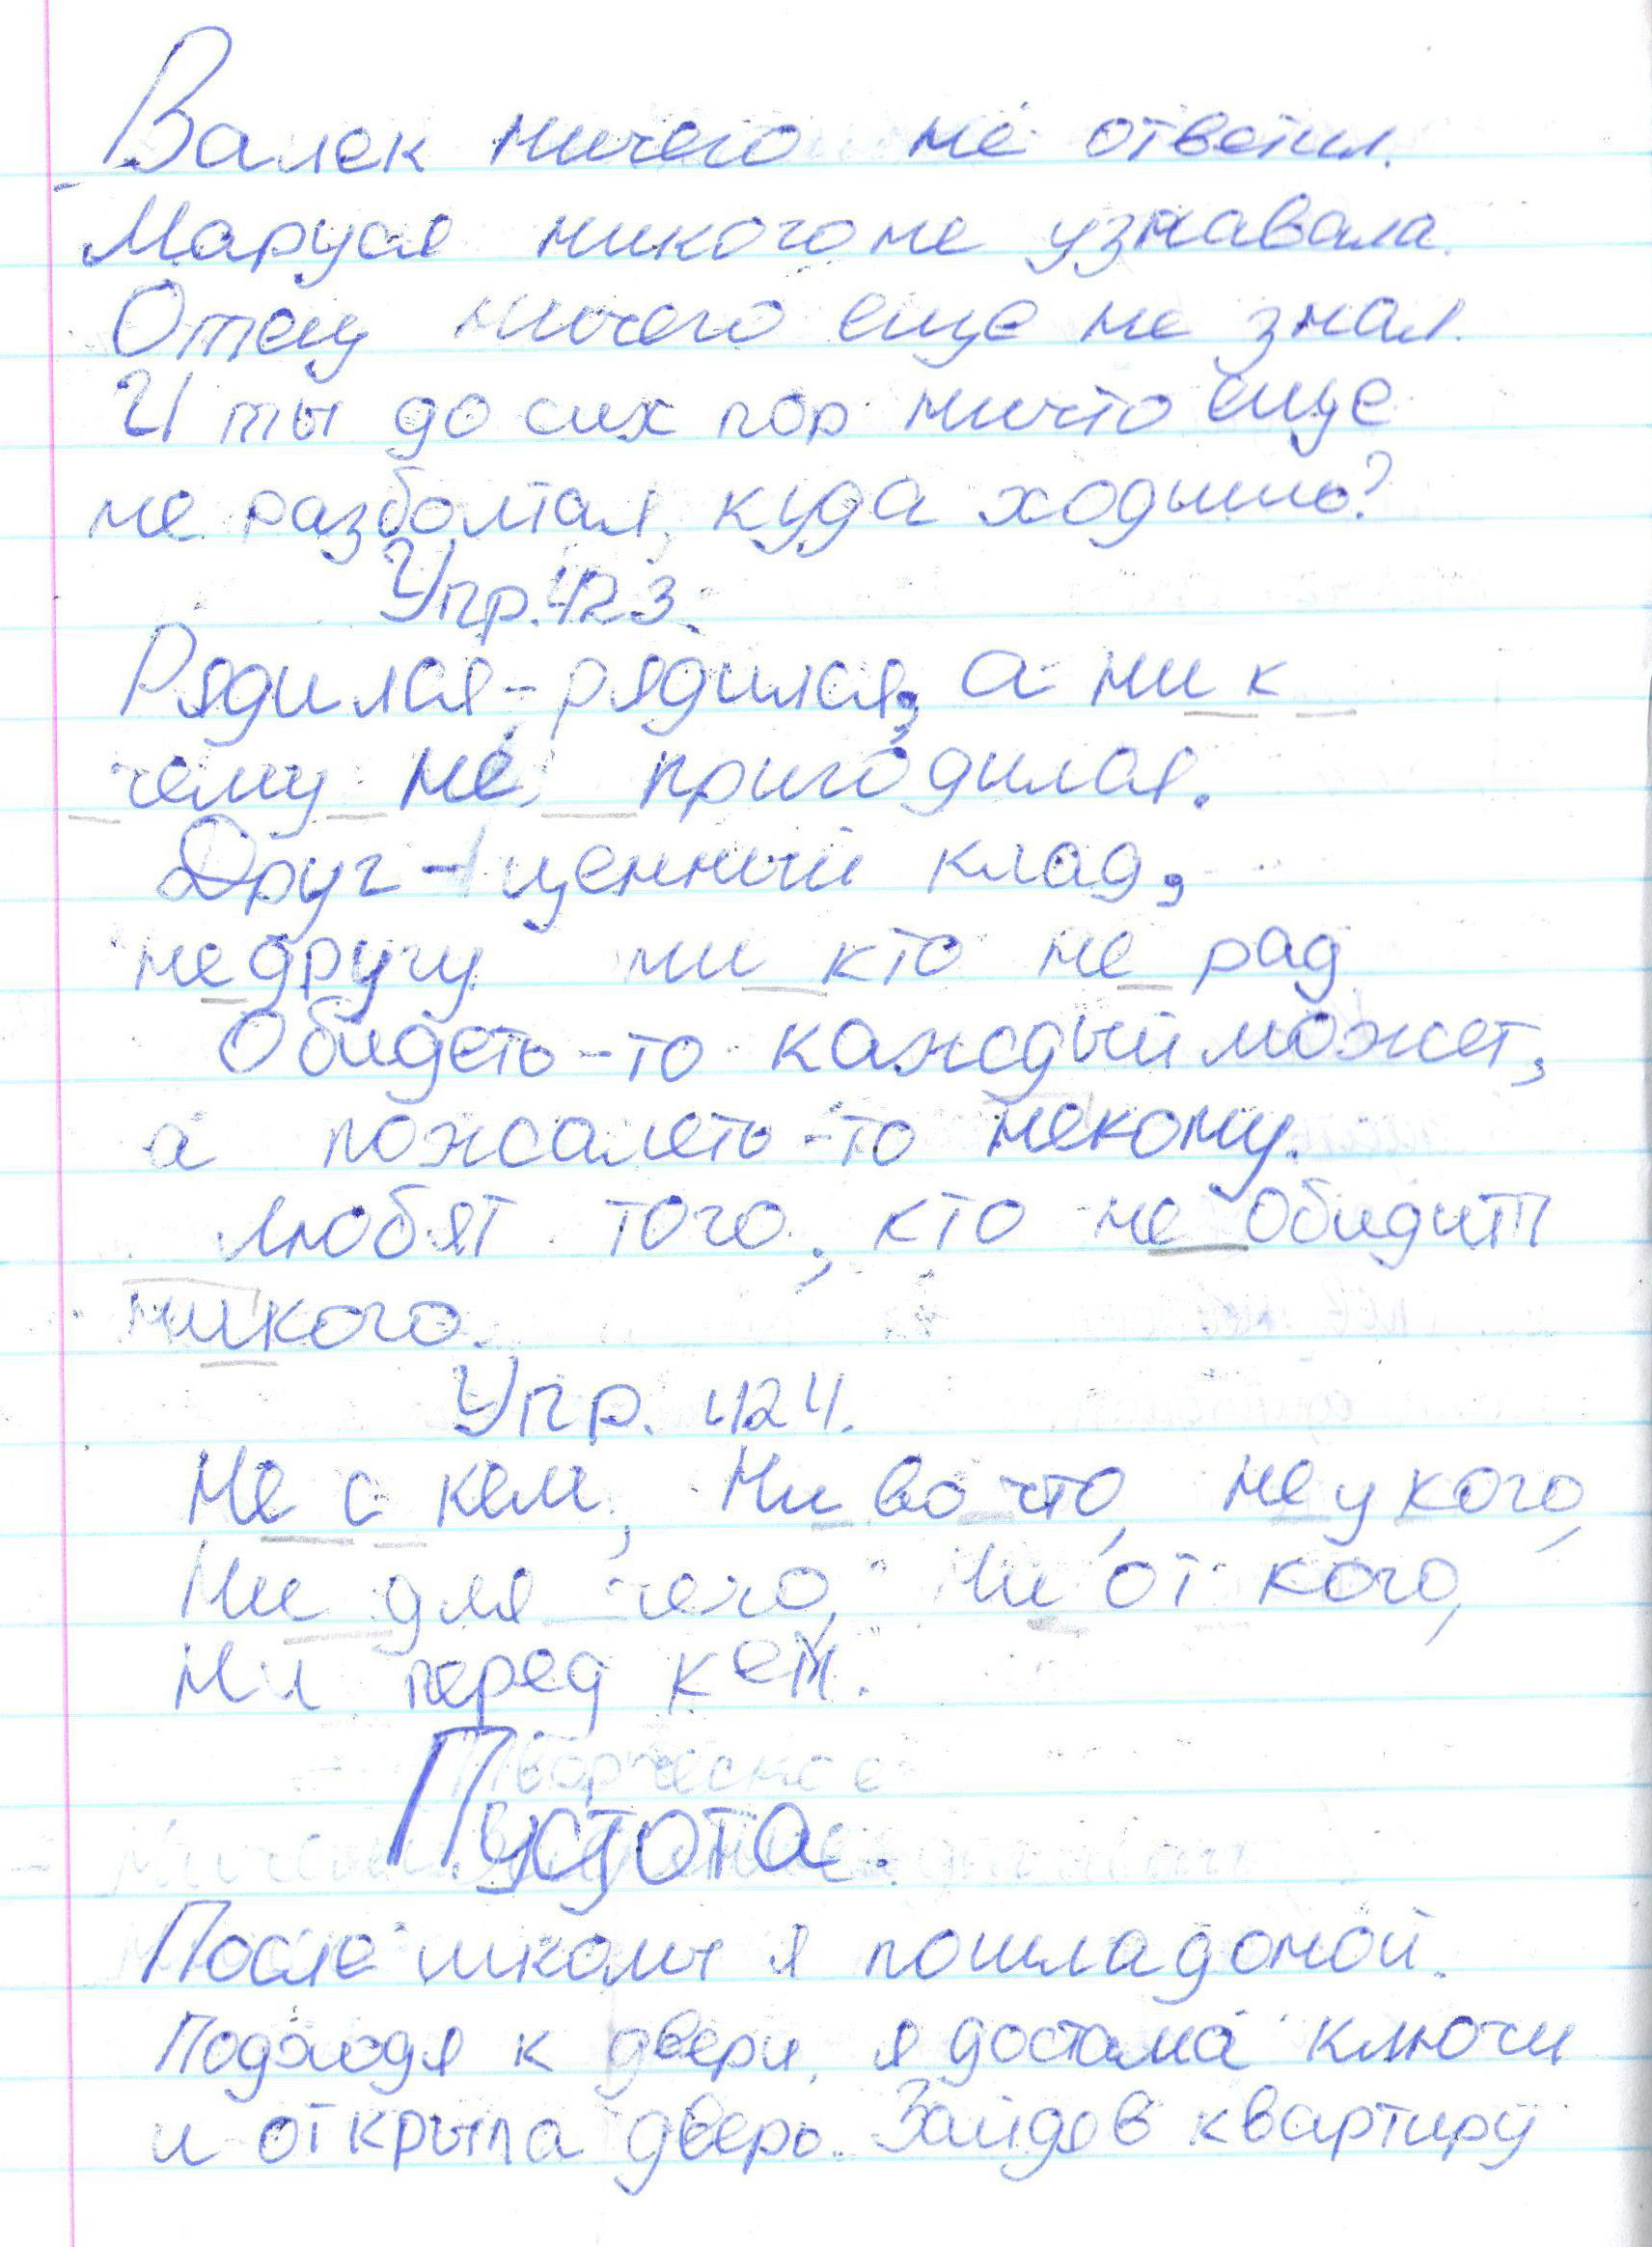 Валек ничего не ответил.
Маруся никого не узнавала.
Отец ничего еще не знал.
И ты до сих пор ничто еще
не разболтал, куда ходишь?
Упр. 423.
Рядился-рядился, а ни к
чему не пригодился.
Друг - ценный клад,
недругу ни кто не рад
Обидеть-то каждый может,
а пожалеть-то некому.
любят того, кто не обидит
никого.
Упр. 424.
Не с кем, Ни во что, не у кого,
Ни для чего, Ни от кого,
Ни перед кем.
Пустота.
После школы я пошла домой.
Подходя к двери, я достала ключи
и открыла дверь. Зайдя в квартиру